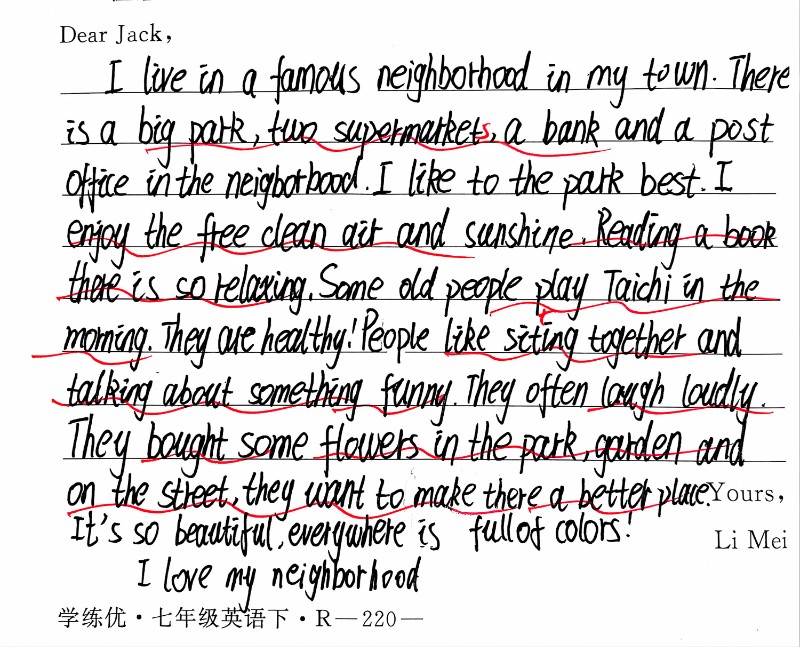 Dear Jack,
I live in a famous neighborhood in my town. There
is a big park, two supermarkets, a bank and a post
office in the neigborbood. I like to the park best. I
enjoy the free clean air and sunshine. Reading a book
there is so relaxing. Some old people play Taichi in the
morning. They are healthy! People like sitting together and
talking about something funny. They often laugh loudly.
They bought some flowers in the park, garden and
on the street, they want to make there a better place.
Yours,
It's so beautiful, everywhere is full of colors!
Li Mei
I love my neighborhood
学练优·七年级英语下·R—220—